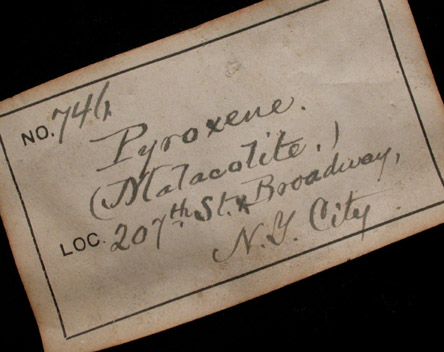 NO.
Pyroxene.
(Malacolite.)
LOC. 207th St. & Broadway,
N.Y. City.